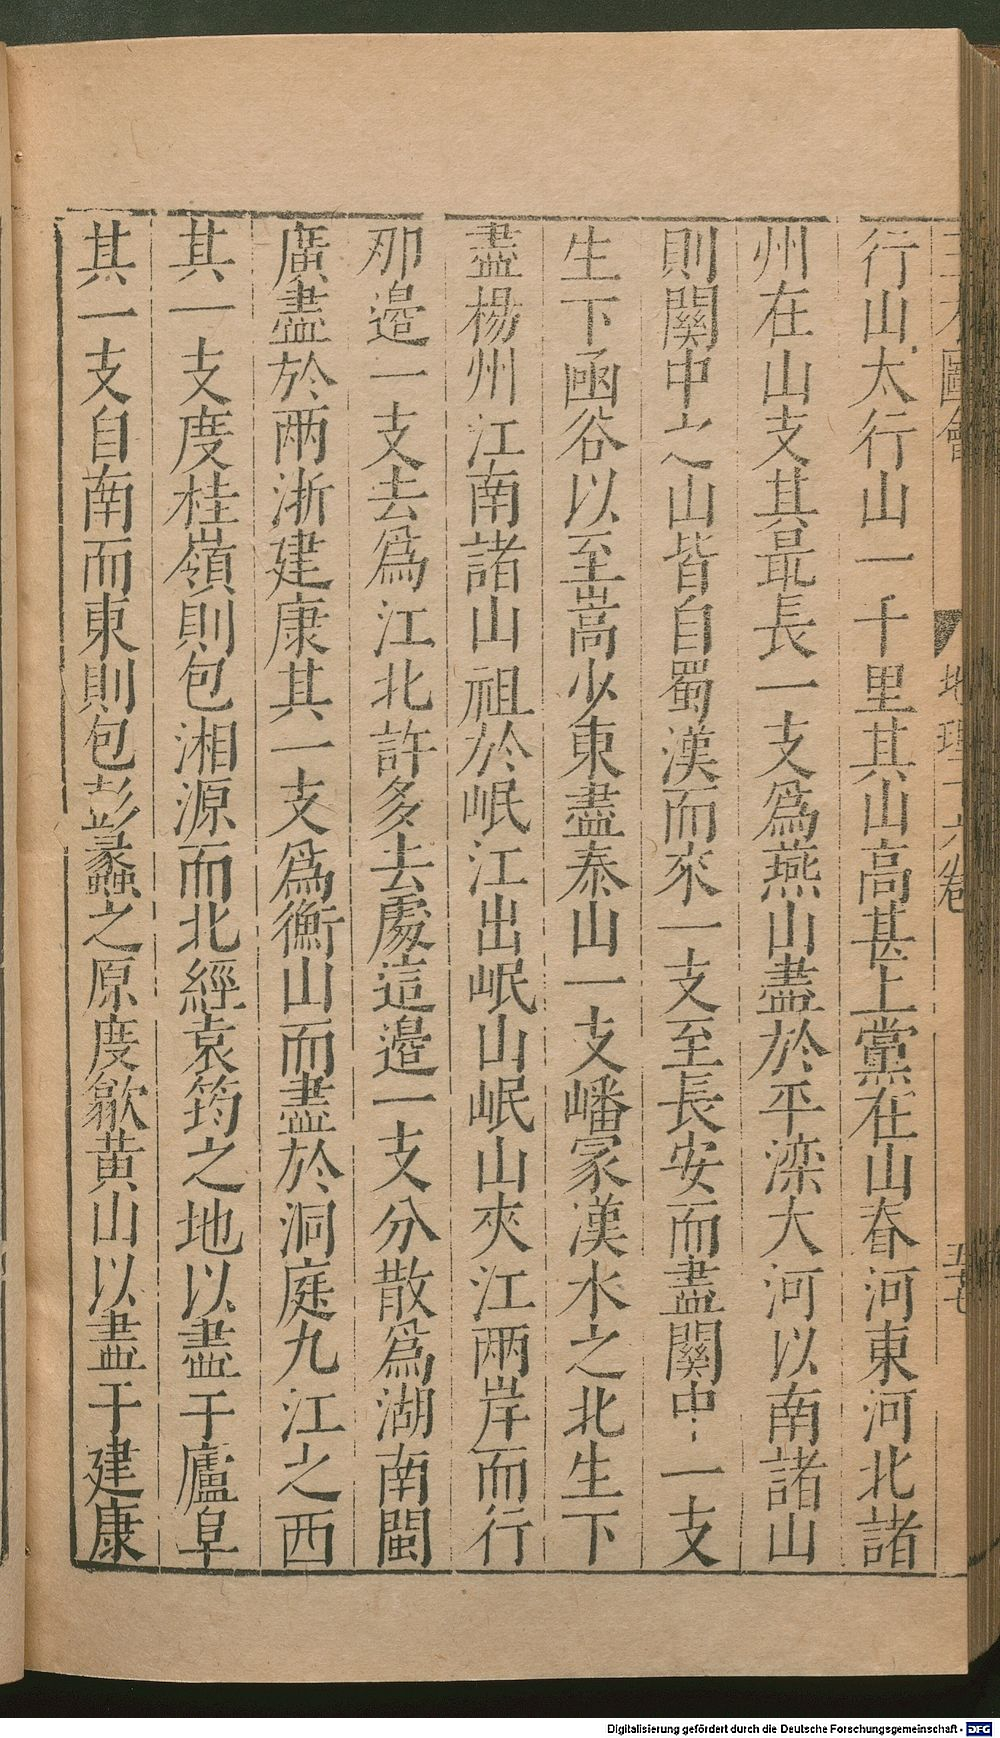 三才圖會
地理十六卷
五七
行山太行山一千里其山高甚上黨在山脊河東河北諸
州在山支其最長一支為燕山盡於平灤大河以南諸山
則關中之山皆自蜀漢而來一支至長安而盡關中一支
生下函谷以至嵩少東盡泰山一支嶓冢漢水之北生下
盡楊州江南諸山祖於岷江出岷山岷山夾江兩岸而行
那邉一支去為江北許多去處這邉一支分散為湖南閩
廣盡於兩浙建康其一支為衡山而盡於洞庭九江之西
其一支度桂嶺則包湘源而北經袁筠之地以盡于廬阜
其一支自南而東則包彭蠡之原度歙黄山以盡于建康
Digitalisierung gefördert durch die Deutsche Forschungsgemeinschaft - DFG